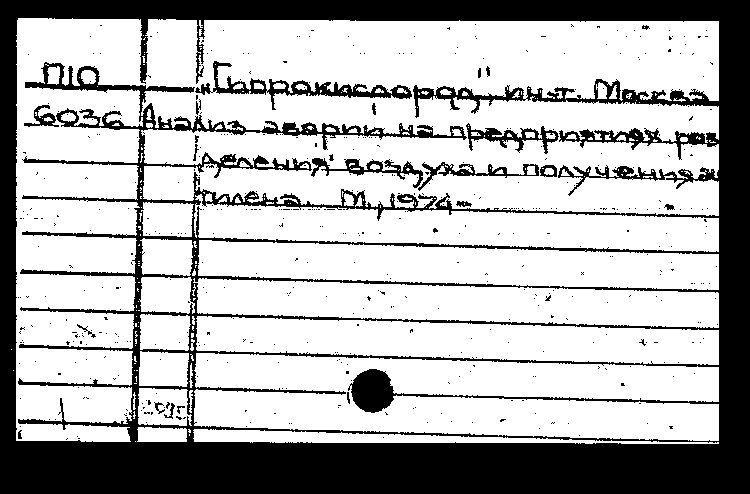 П10 „Гипрокислород", ин-т. Москва
6036 Анализ аварий на предприятиях раз
деления воздуха и получения аце
тилена. М., 1974-